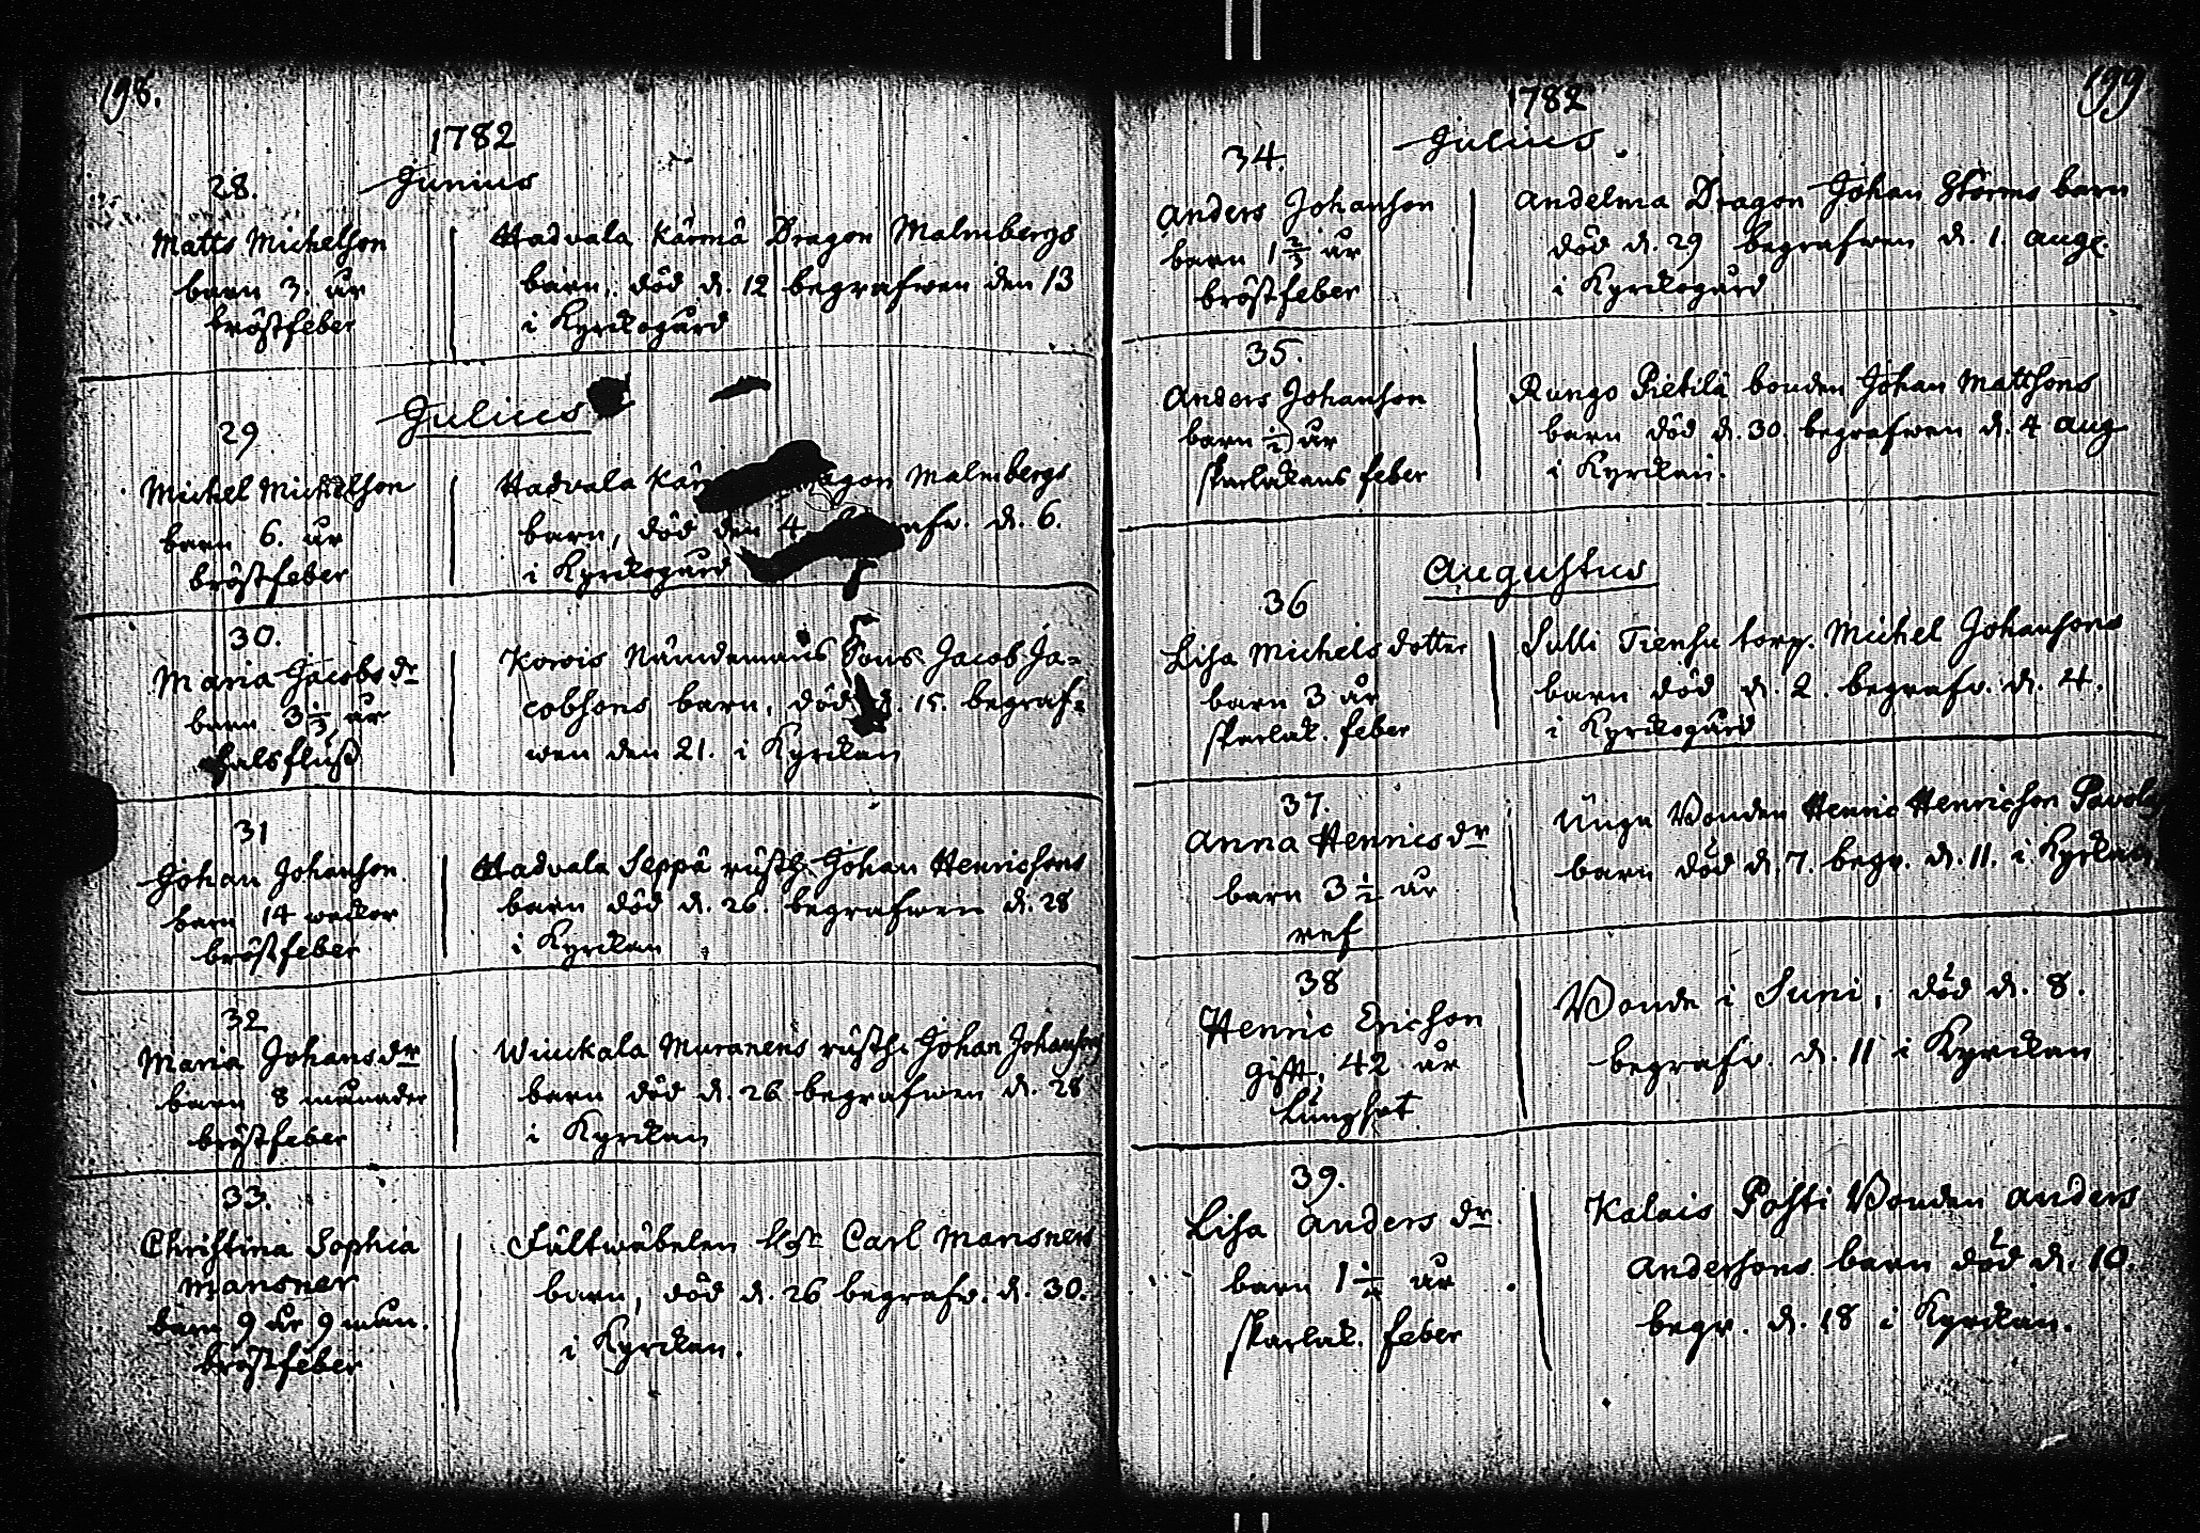 198.
1782
Junius
28.
Matts Michelson
barn 3. år
bröstfeber
Hadvala Kärmä Dragon Malmbergs
barn, död d. 12 begrafwen den 13
i Kyrckogård
Julius
29
Michel Michelson
barn 6. år
bröstfeber
Hadvala Malmbergs
barn, död den 4 d. 6.
i Kyrckogård
30.
Maria Jacobs dr
barn 3 1/3 år
halsfluss
Kowis Nämdemans Sons Jacob Ja=
cobsons barn, död d. 15. begraf=
wen den 21. i Kyrckan
31
Johan Johanson.
barn 14 weckor
bröstfeber
Hadvala Seppä rusth. Johan Henricsons
barn död d. 26. begrafwen d. 28
i Kyrckan
32
Maria Johans dr
barn 8 månader
bröstfeber
Muranens rusth. Johan Johansons
barn död d. 26 begrafwen d. 28
i Kyrckan
33.
Christina Sophia
Mansner
barn 9 år 9 mån.
bröstfeber
Fältwäbelen Carl Mansners
barn, död d. 26 begrafw. d. 30.
i Kyrckan.
199
1782
Julius.
34.
Anders Johanson
barn 1 2/3 år
bröstfeber
Andelma Dragon Johan Storms barn
död d. 29 begrafwen d. 1. Aug.
i Kyrckogård
35.
Anders Johanson
barn 1/2 år
skarlakans feber
Rungo Pietilä bonden Johan Mattsons
barn död d. 30. begrafwen d. 4 Aug
i Kyrckan.
Augustus
36
Lisa Michels dotter
barn 3 år
skarlak. feber
Sulli Tiensu torp. Michel Johansons
barn död d. 2. begrafw. d. 4.
i Kyrckogård
37.
Anna Henrics dr
barn 3 1/2 år
ref
Unga Bonden Henric Henricson
barn död d. 7. begr. d. 11. i Kyrckan
38
Henric Ericson
gift, 42 år
Lungsot
Bonde i Suni, död d. 8.
begrafw. d. 11 i Kyrckan
39.
Lisa Anders dr.
barn 1 år
skarlak. feber
Kalais Pohti Bonden Anders
Andersons barn död d. 10.
begr. d. 18 i Kyrckan.